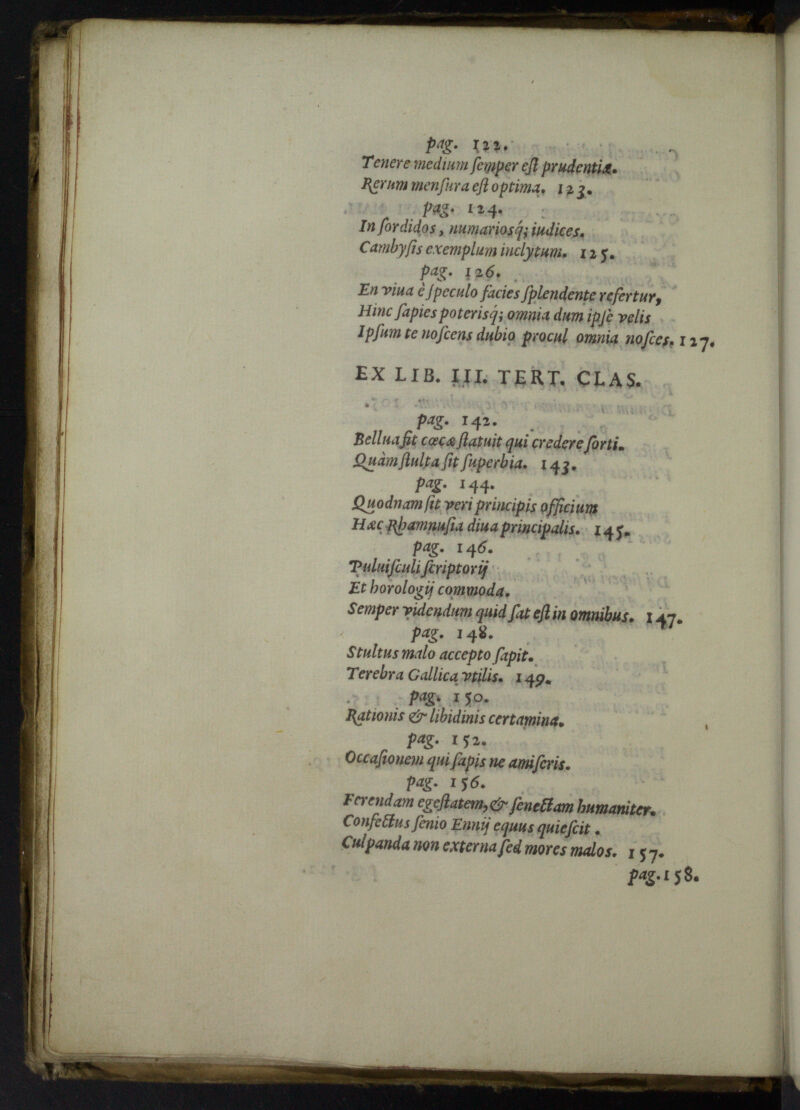 pag. 122.
Tenere medium ſemper eſt prudentiæ.
Rerum menſura eſt optima. 123.
pag. 124.
In ſordidos, numariosq; iudices.
Cambyſis exemplum inclytum. 125.
pag. 126.
En viua è ſpeculo facies ſplendente refertur,
Hinc ſapies poterisq; omnia dum ipſe velis
Ipſum te noſcens dubio procul omnia noſces. 127.
EX LIB. III. TERT. CLAS.
pag. 142.
Bellua fit cæcæ ſtatuit qui credere ſorti.
Quàm ſtulta ſit ſuperbia. 143.
pag. 144.
Quodnam ſit veri principis officium
Hæc Rhamnuſia diua principalis. 145.
pag. 146.
Puluiſculi ſcriptorij
Et horologij commoda.
Semper videndum quid ſat eſt in omnibus. 147.
pag. 148.
Stultus malo accepto ſapit.
Terebra Gallica vtilis. 149.
pag. 150.
Rationis & libidinis certamina.
pag. 152.
Occaſionem qui ſapis ne amiſeris.
pag. 156.
Ferendam egeſtatem, & ſenectam humaniter.
Confectus ſenio Ennij equus quieſcit.
Culpanda non externa ſed mores malos. 157.
pag. 158.